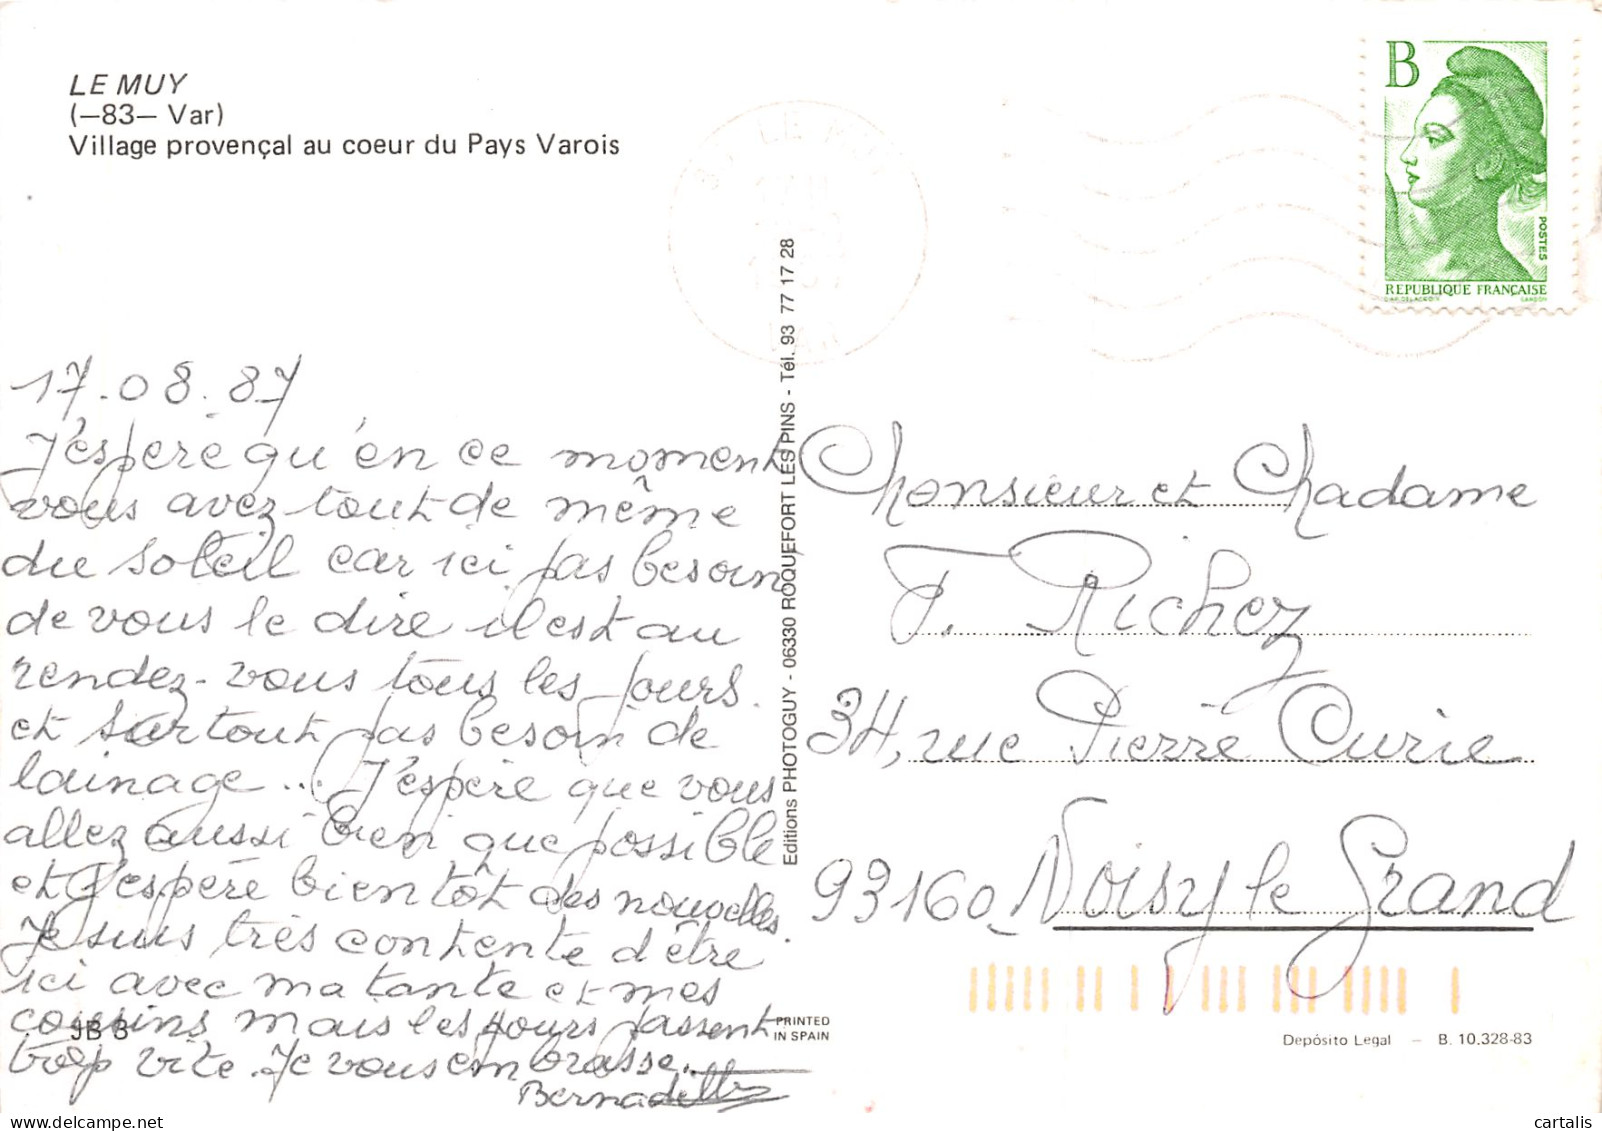 LE MUY
(—83— Var)
Village provençal au coeur du Pays Varois
B
POSTES
REPUBLIQUE FRANÇAISE
LE MUY
17.08.87
J'espère qu'en ce moment
vous avez tout de même
du soleil car ici pas besoin
de vous le dire il est au
rendez-vous tous les jours.
et surtout pas besoin de
lainage... J'espère que vous
allez aussi bien que possible
et j'espère bientôt des nouvelles.
Je suis très contente d'être
ici avec ma tante et mes
cousins mais les jours passent
trop vite. Je vous embrasse.
Bernadette
JB 3
Editions PHOTOGUY - 06330 ROQUEFORT LES PINS - Tél. 93 77 17 28
PRINTED
IN SPAIN
Monsieur et Madame
F. Richez
34, rue Pierre Curie
93160 Noisy le Grand
Depósito Legal — B. 10.328-83
cartalis